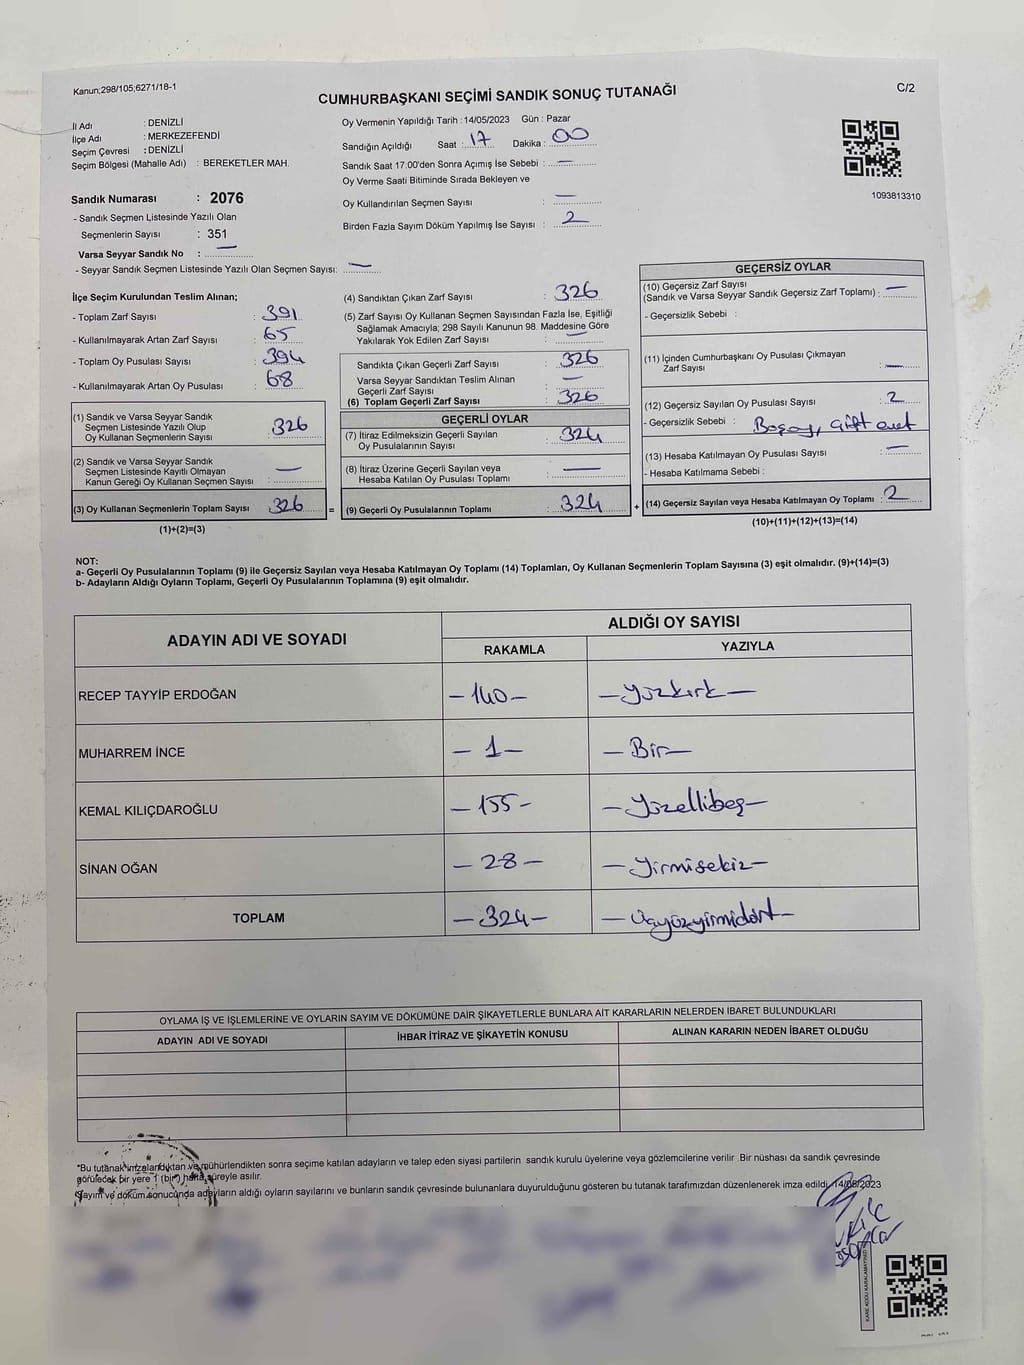 Kanun;298/105;6271/18-1
CUMHURBAŞKANI SEÇİMİ SANDIK SONUÇ TUTANAĞI
C/2
İl Adı : DENİZLİ
İlçe Adı : MERKEZEFENDİ
Seçim Çevresi : DENİZLİ
Seçim Bölgesi (Mahalle Adı) : BEREKETLER MAH.
Sandık Numarası : 2076
- Sandık Seçmen Listesinde Yazılı Olan
Seçmenlerin Sayısı : 351
Varsa Seyyar Sandık No : —
- Seyyar Sandık Seçmen Listesinde Yazılı Olan Seçmen Sayısı: —
Oy Vermenin Yapıldığı Tarih : 14/05/2023 Gün : Pazar
Sandığın Açıldığı Saat : 17 Dakika : 00
Sandık Saat 17:00'den Sonra Açımış İse Sebebi : —
Oy Verme Saati Bitiminde Sırada Bekleyen ve
Oy Kullandırılan Seçmen Sayısı : —
Birden Fazla Sayım Döküm Yapılmış İse Sayısı : 2
1093813310
İlçe Seçim Kurulundan Teslim Alınan;
- Toplam Zarf Sayısı : 391
- Kullanılmayarak Artan Zarf Sayısı : 65
- Toplam Oy Pusulası Sayısı : 394
- Kullanılmayarak Artan Oy Pusulası : 68
(1) Sandık ve Varsa Seyyar Sandık
Seçmen Listesinde Yazılı Olup
Oy Kullanan Seçmenlerin Sayısı : 326
(2) Sandık ve Varsa Seyyar Sandık
Seçmen Listesinde Kayıtlı Olmayan
Kanun Gereği Oy Kullanan Seçmen Sayısı : —
(3) Oy Kullanan Seçmenlerin Toplam Sayısı : 326 =
(1)+(2)=(3)
(4) Sandıktan Çıkan Zarf Sayısı : 326
(5) Zarf Sayısı Oy Kullanan Seçmen Sayısından Fazla İse, Eşitliği
Sağlamak Amacıyla; 298 Sayılı Kanunun 98. Maddesine Göre
Yakılarak Yok Edilen Zarf Sayısı : —
Sandıkta Çıkan Geçerli Zarf Sayısı : 326
Varsa Seyyar Sandıktan Teslim Alınan
Geçerli Zarf Sayısı : —
(6) Toplam Geçerli Zarf Sayısı : 326
GEÇERLİ OYLAR
(7) İtiraz Edilmeksizin Geçerli Sayılan
Oy Pusulalarının Sayısı : 324
(8) İtiraz Üzerine Geçerli Sayılan veya
Hesaba Katılan Oy Pusulası Toplamı : —
(9) Geçerli Oy Pusulalarının Toplamı : 324 +
GEÇERSİZ OYLAR
(10) Geçersiz Zarf Sayısı
(Sandık ve Varsa Seyyar Sandık Geçersiz Zarf Toplamı) : —
- Geçersizlik Sebebi :
(11) İçinden Cumhurbaşkanı Oy Pusulası Çıkmayan
Zarf Sayısı : —
(12) Geçersiz Sayılan Oy Pusulası Sayısı : 2
- Geçersizlik Sebebi : Boşoy, Çift evet
(13) Hesaba Katılmayan Oy Pusulası Sayısı : —
- Hesaba Katılmama Sebebi :
(14) Geçersiz Sayılan veya Hesaba Katılmayan Oy Toplamı : 2
(10)+(11)+(12)+(13)=(14)
NOT:
a- Geçerli Oy Pusulalarının Toplamı (9) ile Geçersiz Sayılan veya Hesaba Katılmayan Oy Toplamı (14) Toplamları, Oy Kullanan Seçmenlerin Toplam Sayısına (3) eşit olmalıdır. (9)+(14)=(3)
b- Adayların Aldığı Oyların Toplamı, Geçerli Oy Pusulalarının Toplamına (9) eşit olmalıdır.
ADAYIN ADI VE SOYADI
ALDIĞI OY SAYISI
RAKAMLA YAZIYLA
RECEP TAYYİP ERDOĞAN —140— —Yüzkırk—
MUHARREM İNCE —1— —Bir—
KEMAL KILIÇDAROĞLU —155— —Yüzellibeş—
SİNAN OĞAN —28— —Yirmisekiz—
TOPLAM —324— —Üçyüzyirmidört—
OYLAMA İŞ VE İŞLEMLERİNE VE OYLARIN SAYIM VE DÖKÜMÜNE DAİR ŞİKAYETLERLE BUNLARA AİT KARARLARIN NELERDEN İBARET BULUNDUKLARI
ADAYIN ADI VE SOYADI İHBAR İTİRAZ VE ŞİKAYETİN KONUSU ALINAN KARARIN NEDEN İBARET OLDUĞU
*Bu tutanak imzalandıktan ve mühürlendikten sonra seçime katılan adayların ve talep eden siyasi partilerin sandık kurulu üyelerine veya gözlemcilerine verilir .Bir nüshası da sandık çevresinde
görülecek bir yere 1 (bir) hafta süreyle asılır.
Sayım ve döküm sonucunda adayların aldığı oyların sayılarını ve bunların sandık çevresinde bulunanlara duyurulduğunu gösteren bu tutanak tarafımızdan düzenlenerek imza edildi. 14/05/2023